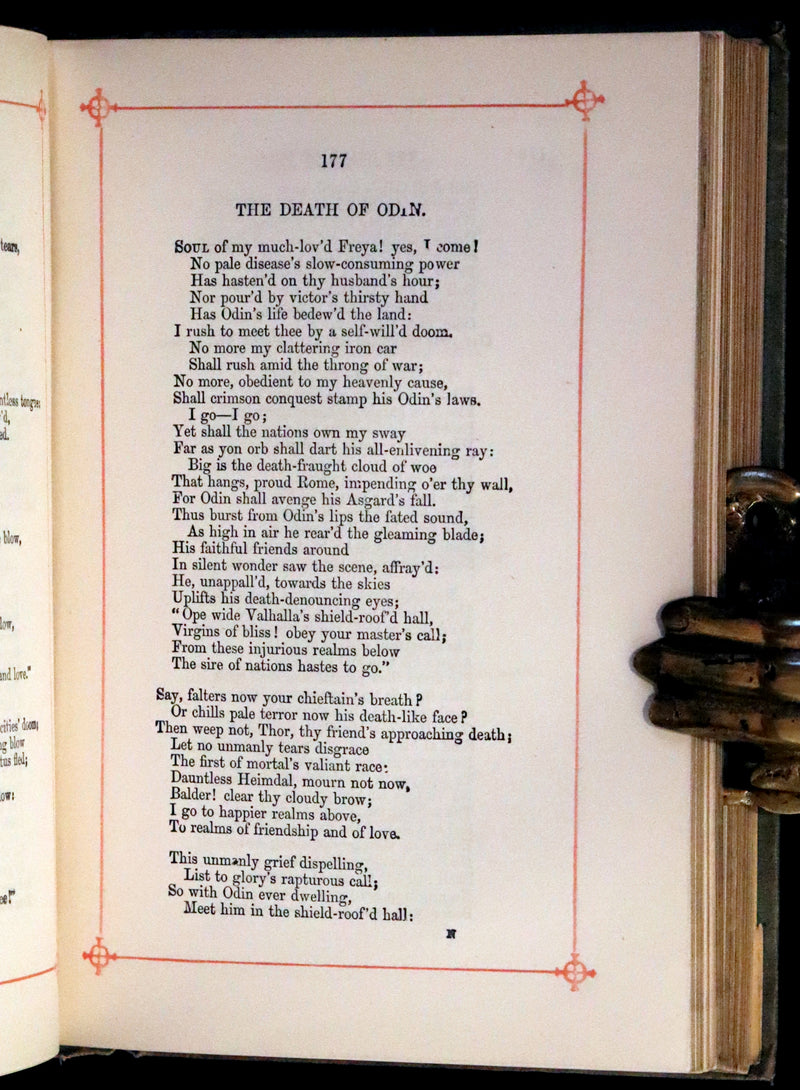 177
THE DEATH OF ODIN.
SOUL of my much-lov'd Freya! yes, I come!
No pale disease's slow-consuming power
Has hasten'd on thy husband's hour;
Nor pour'd by victor's thirsty hand
Has Odin's life bedew'd the land:
I rush to meet thee by a self-will'd doom.
No more my clattering iron car
Shall rush amid the throng of war;
No more, obedient to my heavenly cause,
Shall crimson conquest stamp his Odin's laws.
I go—I go;
Yet shall the nations own my sway
Far as yon orb shall dart his all-enlivening ray:
Big is the death-fraught cloud of woe
That hangs, proud Rome, impending o'er thy wall,
For Odin shall avenge his Asgard's fall.
Thus burst from Odin's lips the fated sound,
As high in air he rear'd the gleaming blade;
His faithful friends around
In silent wonder saw the scene, affray'd:
He, unappall'd, towards the skies
Uplifts his death-denouncing eyes;
"Ope wide Valhalla's shield-roof'd hall,
Virgins of bliss! obey your master's call;
From these injurious realms below
The sire of nations hastes to go."
Say, falters now your chieftain's breath?
Or chills pale terror now his death-like face?
Then weep not, Thor, thy friend's approaching death;
Let no unmanly tears disgrace
The first of mortal's valiant race:
Dauntless Heimdal, mourn not now,
Balder! clear thy cloudy brow;
I go to happier realms above,
To realms of friendship and of love.
This unmanly grief dispelling,
List to glory's rapturous call;
So with Odin ever dwelling,
Meet him in the shield-roof'd hall:
N
tears,
tongue;
'd,
ed.
blow,
low,
and love."
cities' doom;
blow
fled;
ow:
ee!"